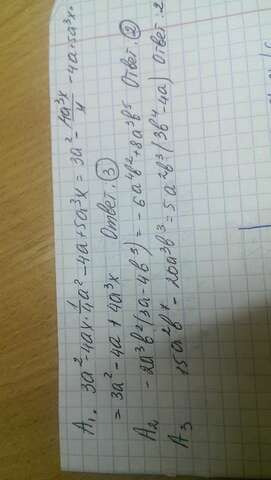 A₁. 3a² - 4ax · 1/4 a² - 4a + 5a³x = 3a² - 4a³x/4 - 4a + 5a³x =
= 3a² - 4a + 4a³x Ответ: ③
A₂ - 2a³b²(3a - 4b³) = - 6a⁴b² + 8a³b⁵ Ответ: ②
A₃ 15a²b⁷ - 20a³b³ = 5a²b³(3b⁴ - 4a) Ответ: 2